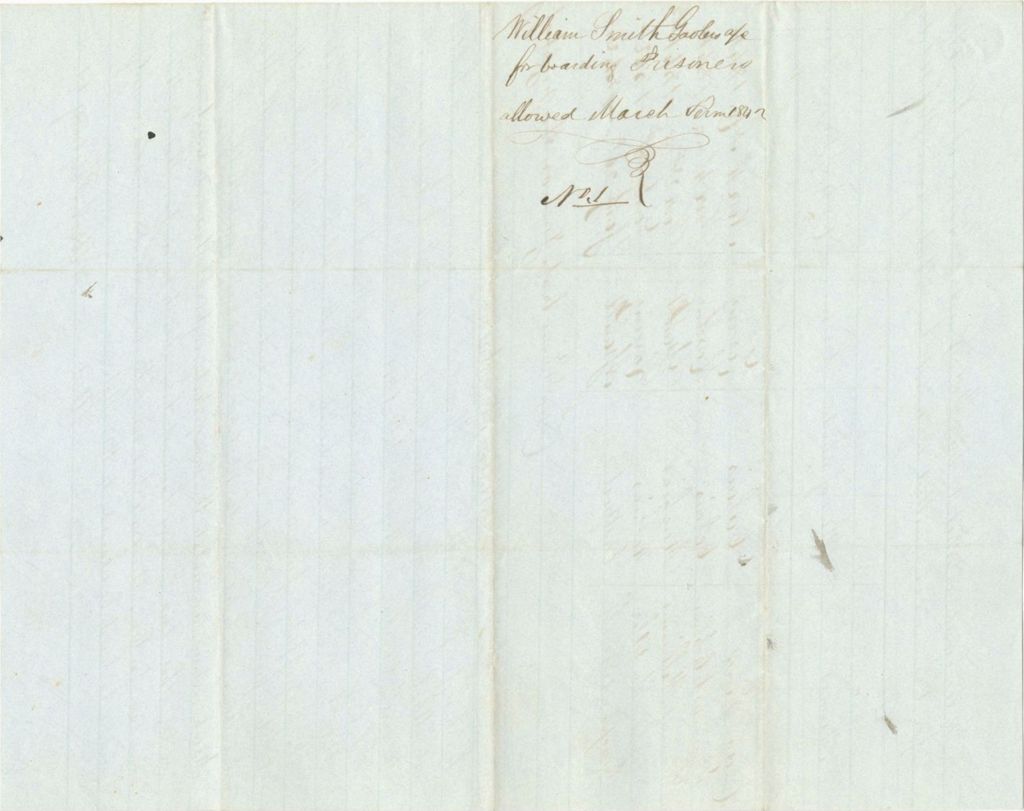 William Smith Gaolers a/c
for boarding Prisoners
allowed March Term 1842
No. 1